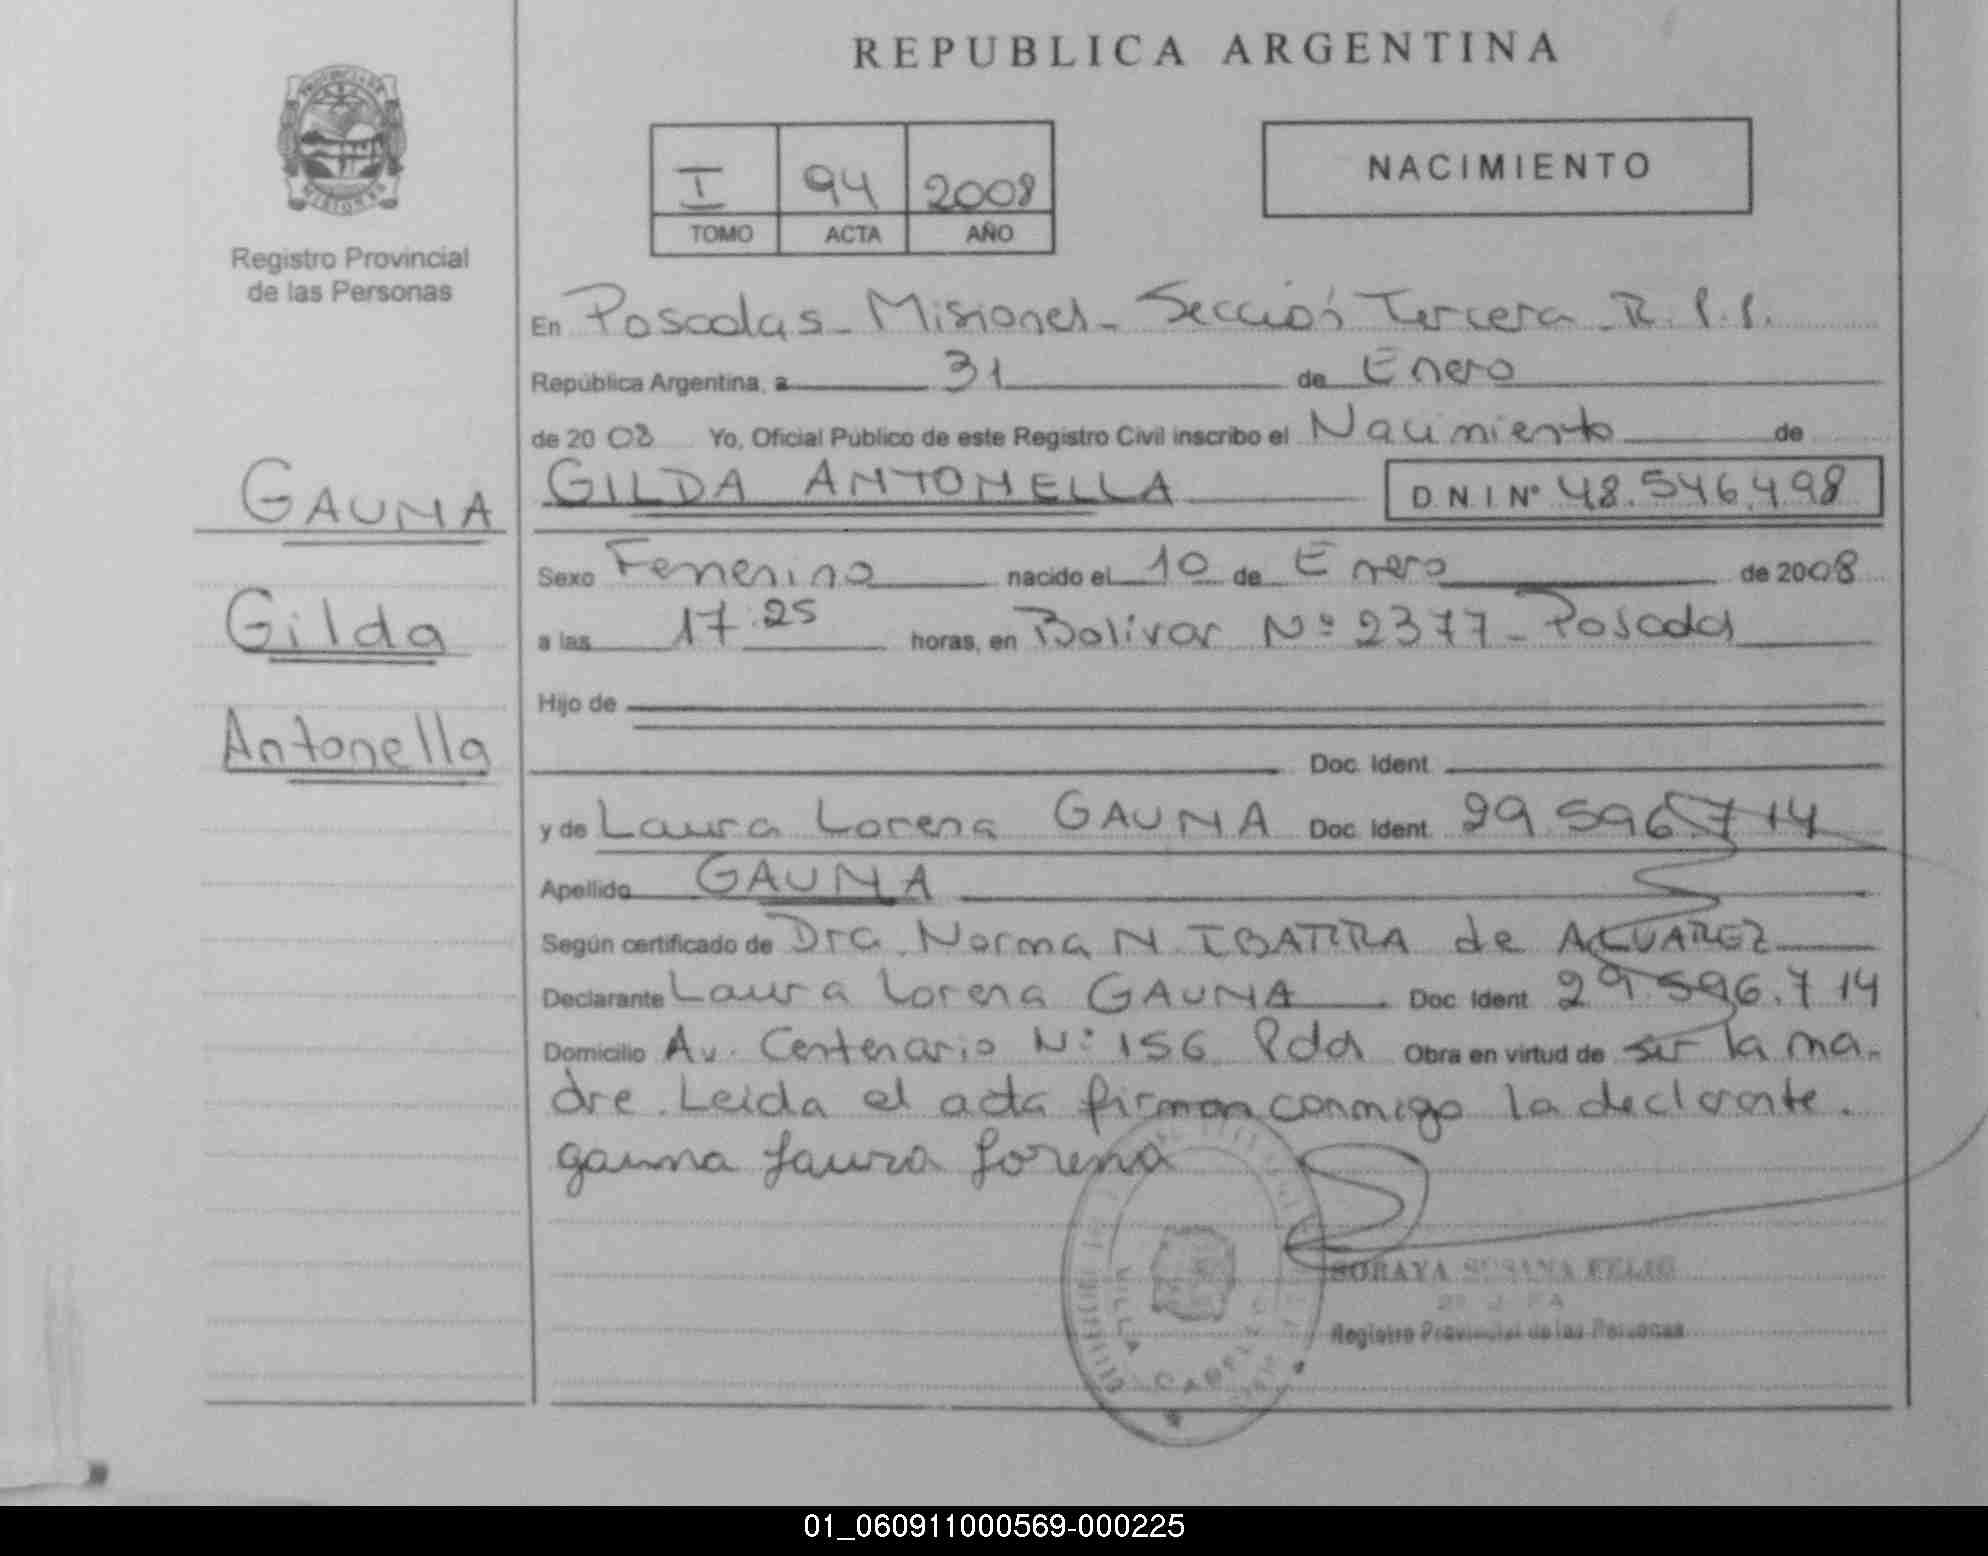 REPUBLICA ARGENTINA
PROVINCIA DE
MISIONES
Registro Provincial
de las Personas
I 94 2008
TOMO ACTA AÑO
NACIMIENTO
En Posadas - Misiones - Sección Tercera - R. P. P.
República Argentina, a 31 de Enero
de 2008 Yo, Oficial Público de este Registro Civil inscribo el Nacimiento de
GILDA ANTONELLA D.N.I Nº 48.546.498
GAUNA
Gilda
Antonella
Sexo Femenino nacido el 10 de Enero de 2008
a las 17:25 horas, en Bolívar Nº 2377 - Posadas
Hijo de
Doc. Ident.
y de Laura Lorena GAUNA Doc. Ident. 29.596.714
Apellido GAUNA
Según certificado de Dra. Norma N. IBARRA de ALVAREZ
Declarante Laura Lorena GAUNA Doc. Ident. 29.596.714
Domicilio Av. Centenario Nº 156 Pdas Obra en virtud de ser la ma-
dre. Leida el acta firman conmigo la declarante.
gauna Laura Lorena
SORAYA SUSANA
Registro Provincial de las Personas
VILLA CABELLO
01_060911000569-000225